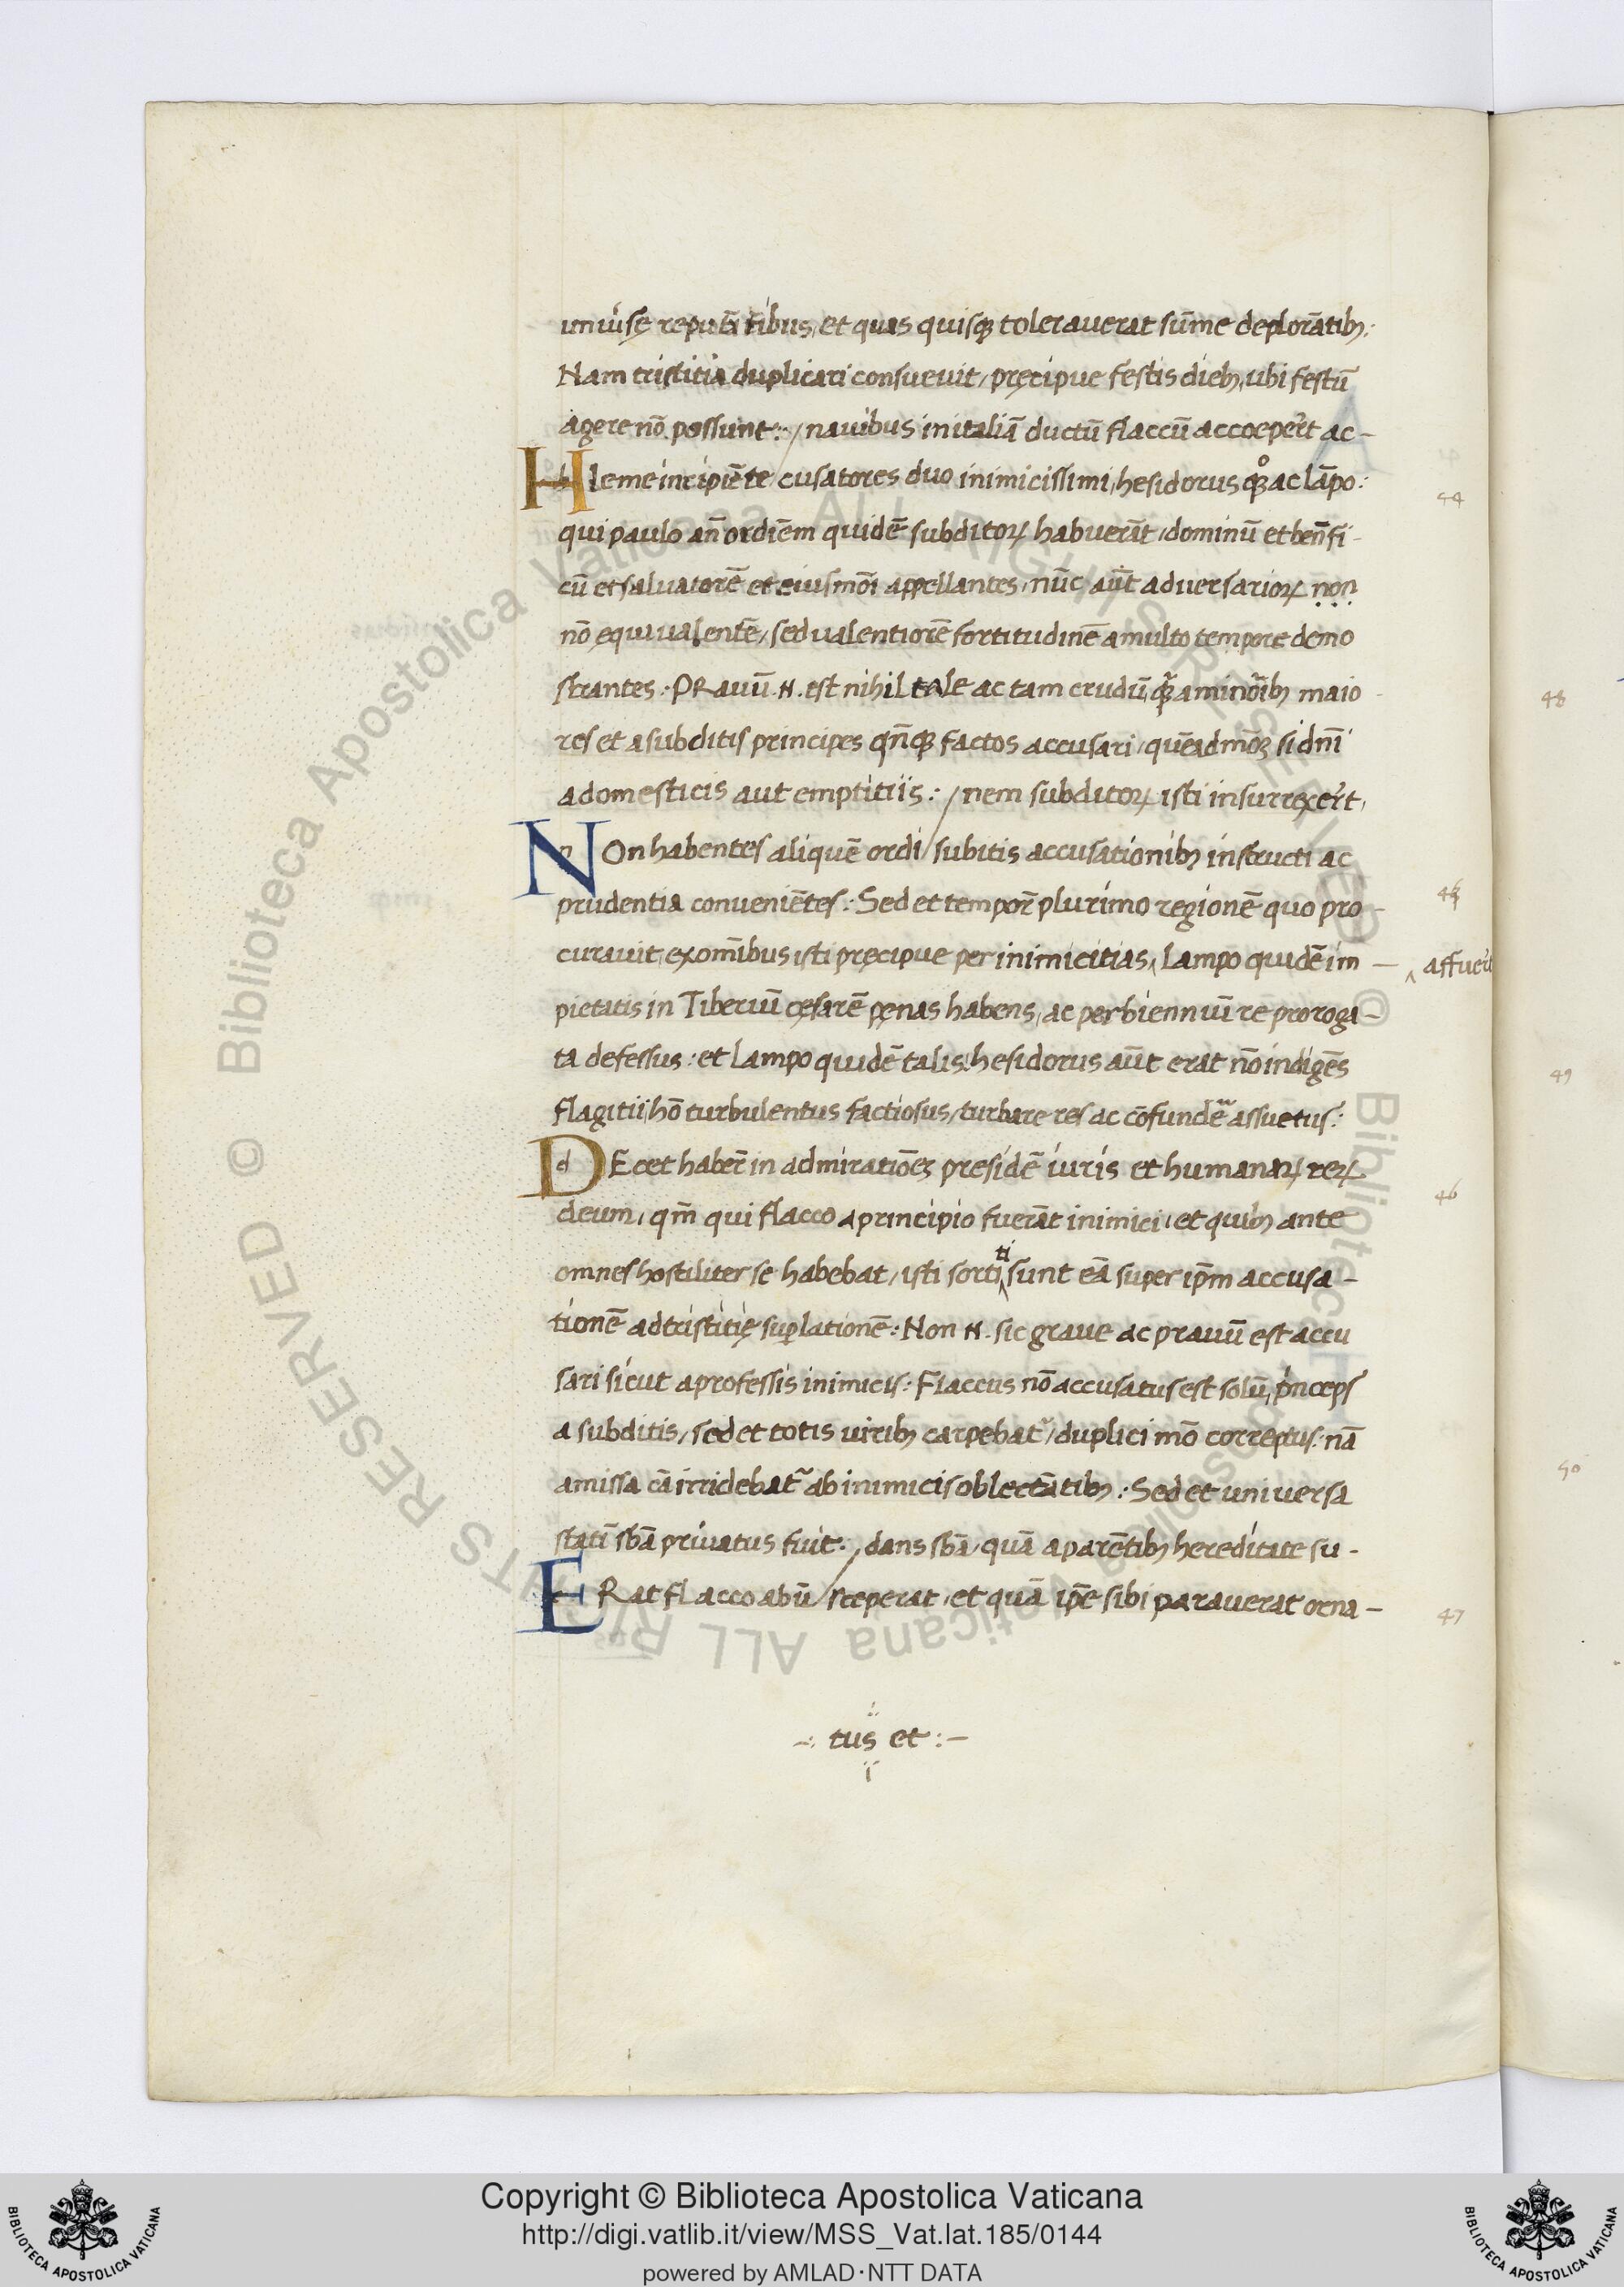 uniūse reputātibus, et quas quisqꝫ tolerauerat sūme deplorātibꝫ:
Nam tristitia duplicari consueuit, pręcipue festis diebꝫ, ubi festū
agere nō possunt: / nauibus in italiā ductū flaccū accoeper̄t ac-
Hleme incipiēte / cusatores duo inimicissimi, hesidorus qꝫ ac lāpo: 44
qui paulo an̄ ordiēm quidē subditoꝝ habuerāt, dominū et ben̄fi-
cū et saluatorē et eiusmōi appellantes, nūc aūt aduersarioꝝ non
nō equiualentē, sed ualentiorē fortitudinē a multo tempore demo
strantes: PRauū .N. est nihil tale ac tam crudū, qꝫ a minorībꝫ maio-
res et a subditis principes qn̄qꝫ factos accusari, quēadmōꝫ si dn̄i
a domesticis aut emptitiis: / nem subditoꝝ isti insurrexer̄t,
NOn habentes aliquē ordi / subitis accusationibꝫ instructi ac
prudentia conueniētes: Sed et tempor̄ plurimo regionē quo pro- 45
curauit, ex omībus isti pręcipue per inimicitias ‸ Lampo quidē im- ‸ affuer̄t
pietatis in Tiberiū cęsarē pęnas habens, ac per bienniū re proroga-
ta defessus: et Lampo quidē talis, hesidorus aūt erat nō indigēs
flagitii, hō turbulentus factiosus, turbare res ac cōfundē assuetus:
DEcet haber̄ in admiratiōeꝫ presidē iuris et humanaꝝ reꝝ 46
deum, qm̄ qui flacco a principio fuerāt inimici, et quibꝫ ante
omnes hostiliter se habebat, isti sorti‸ti sunt eā super ip̄m accusa-
tionē ad tristitię suplationē: Non .N. sic graue ac prauū est accu
sari sicut a professis inimicis: Flaccus nō accusatus est solū, p̄nceps
a subditis, sed et totis uiribꝫ carpebat᷑, duplici mō correptus: nā
amissa cā irridebat᷑ ab inimicis oblectātibꝫ: Sed et uniuersa
statī sb̄a priuatus fuit: / dans sb̄a, quā a parētibꝫ hereditate su-
ERat flacco abū / sceperat, et quā ip̄e sibi parauerat orna- 47
-: tus et :-
48
49
50
Copyright © Biblioteca Apostolica Vaticana
http://digi.vatlib.it/view/MSS_Vat.lat.185/0144
powered by AMLAD·NTT DATA